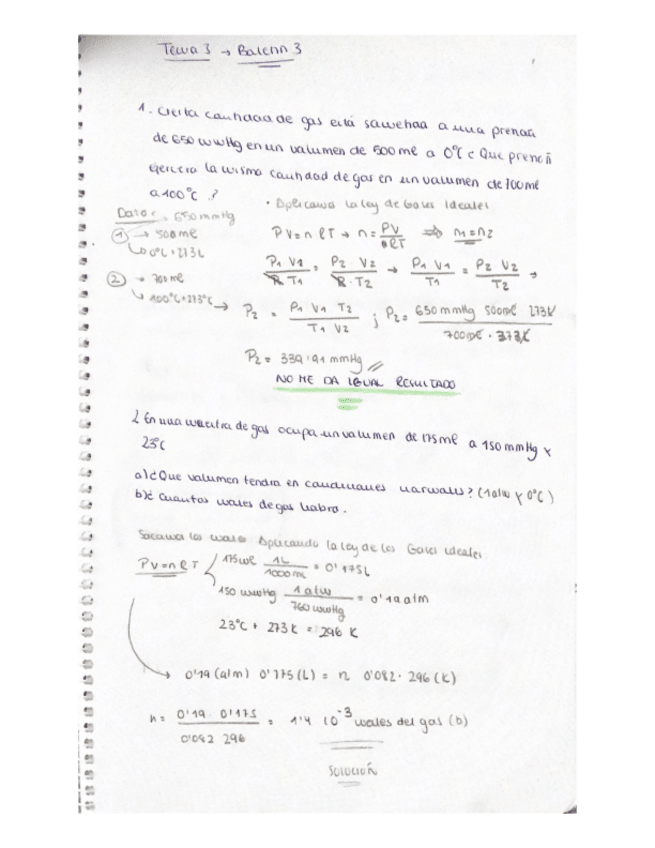 Tema 3 → Boletín 3
1. Cierta cantidad de gas está sometida a una presión
de 650 mmHg en un volumen de 500 ml a 0°C ¿ Que presión
ejerceria la misma cantidad de gas en un volumen de 700 ml
a 100°C ?
· Aplicamos la ley de Gases Ideales
Datos: 650 mmHg
① → 500 ml
↳ 0°C + 273 k
PV = n R T → n = PV / RT ⇒ n1 = n2
② → 700 ml
↳ 100°C + 273°C →
P1 V1 / R T1 = P2 V2 / R T2 → P1 V1 / T1 = P2 V2 / T2 →
P2 = P1 V1 T2 / T1 V2 ; P2 = 650 mmHg 500 ml 273 k / 700 ml · 373 k
P2 = 339'91 mmHg
NO ME DA IGUAL RESULTADO
2 En una muestra de gas ocupa un volumen de 175 ml a 150 mmHg y
23°C
a) ¿ Que volumen tendra en condiciones normales? (1 atm y 0°C)
b) ¿ Cuantos moles de gas habra.
Sacamos los moles Aplicando la ley de los Gases ideales
PV = n R T
175 ml 1 L / 1000 ml = 0'175 L
150 mmHg 1 atm / 760 mmHg = 0'19 atm
23°C + 273 k = 296 K
→ 0'19 (atm) 0'175 (L) = n 0'082 · 296 (K)
n = 0'19 · 0'175 / 0'082 296 = 1'4 10⁻³ moles del gas (b)
SOLUCIÓN